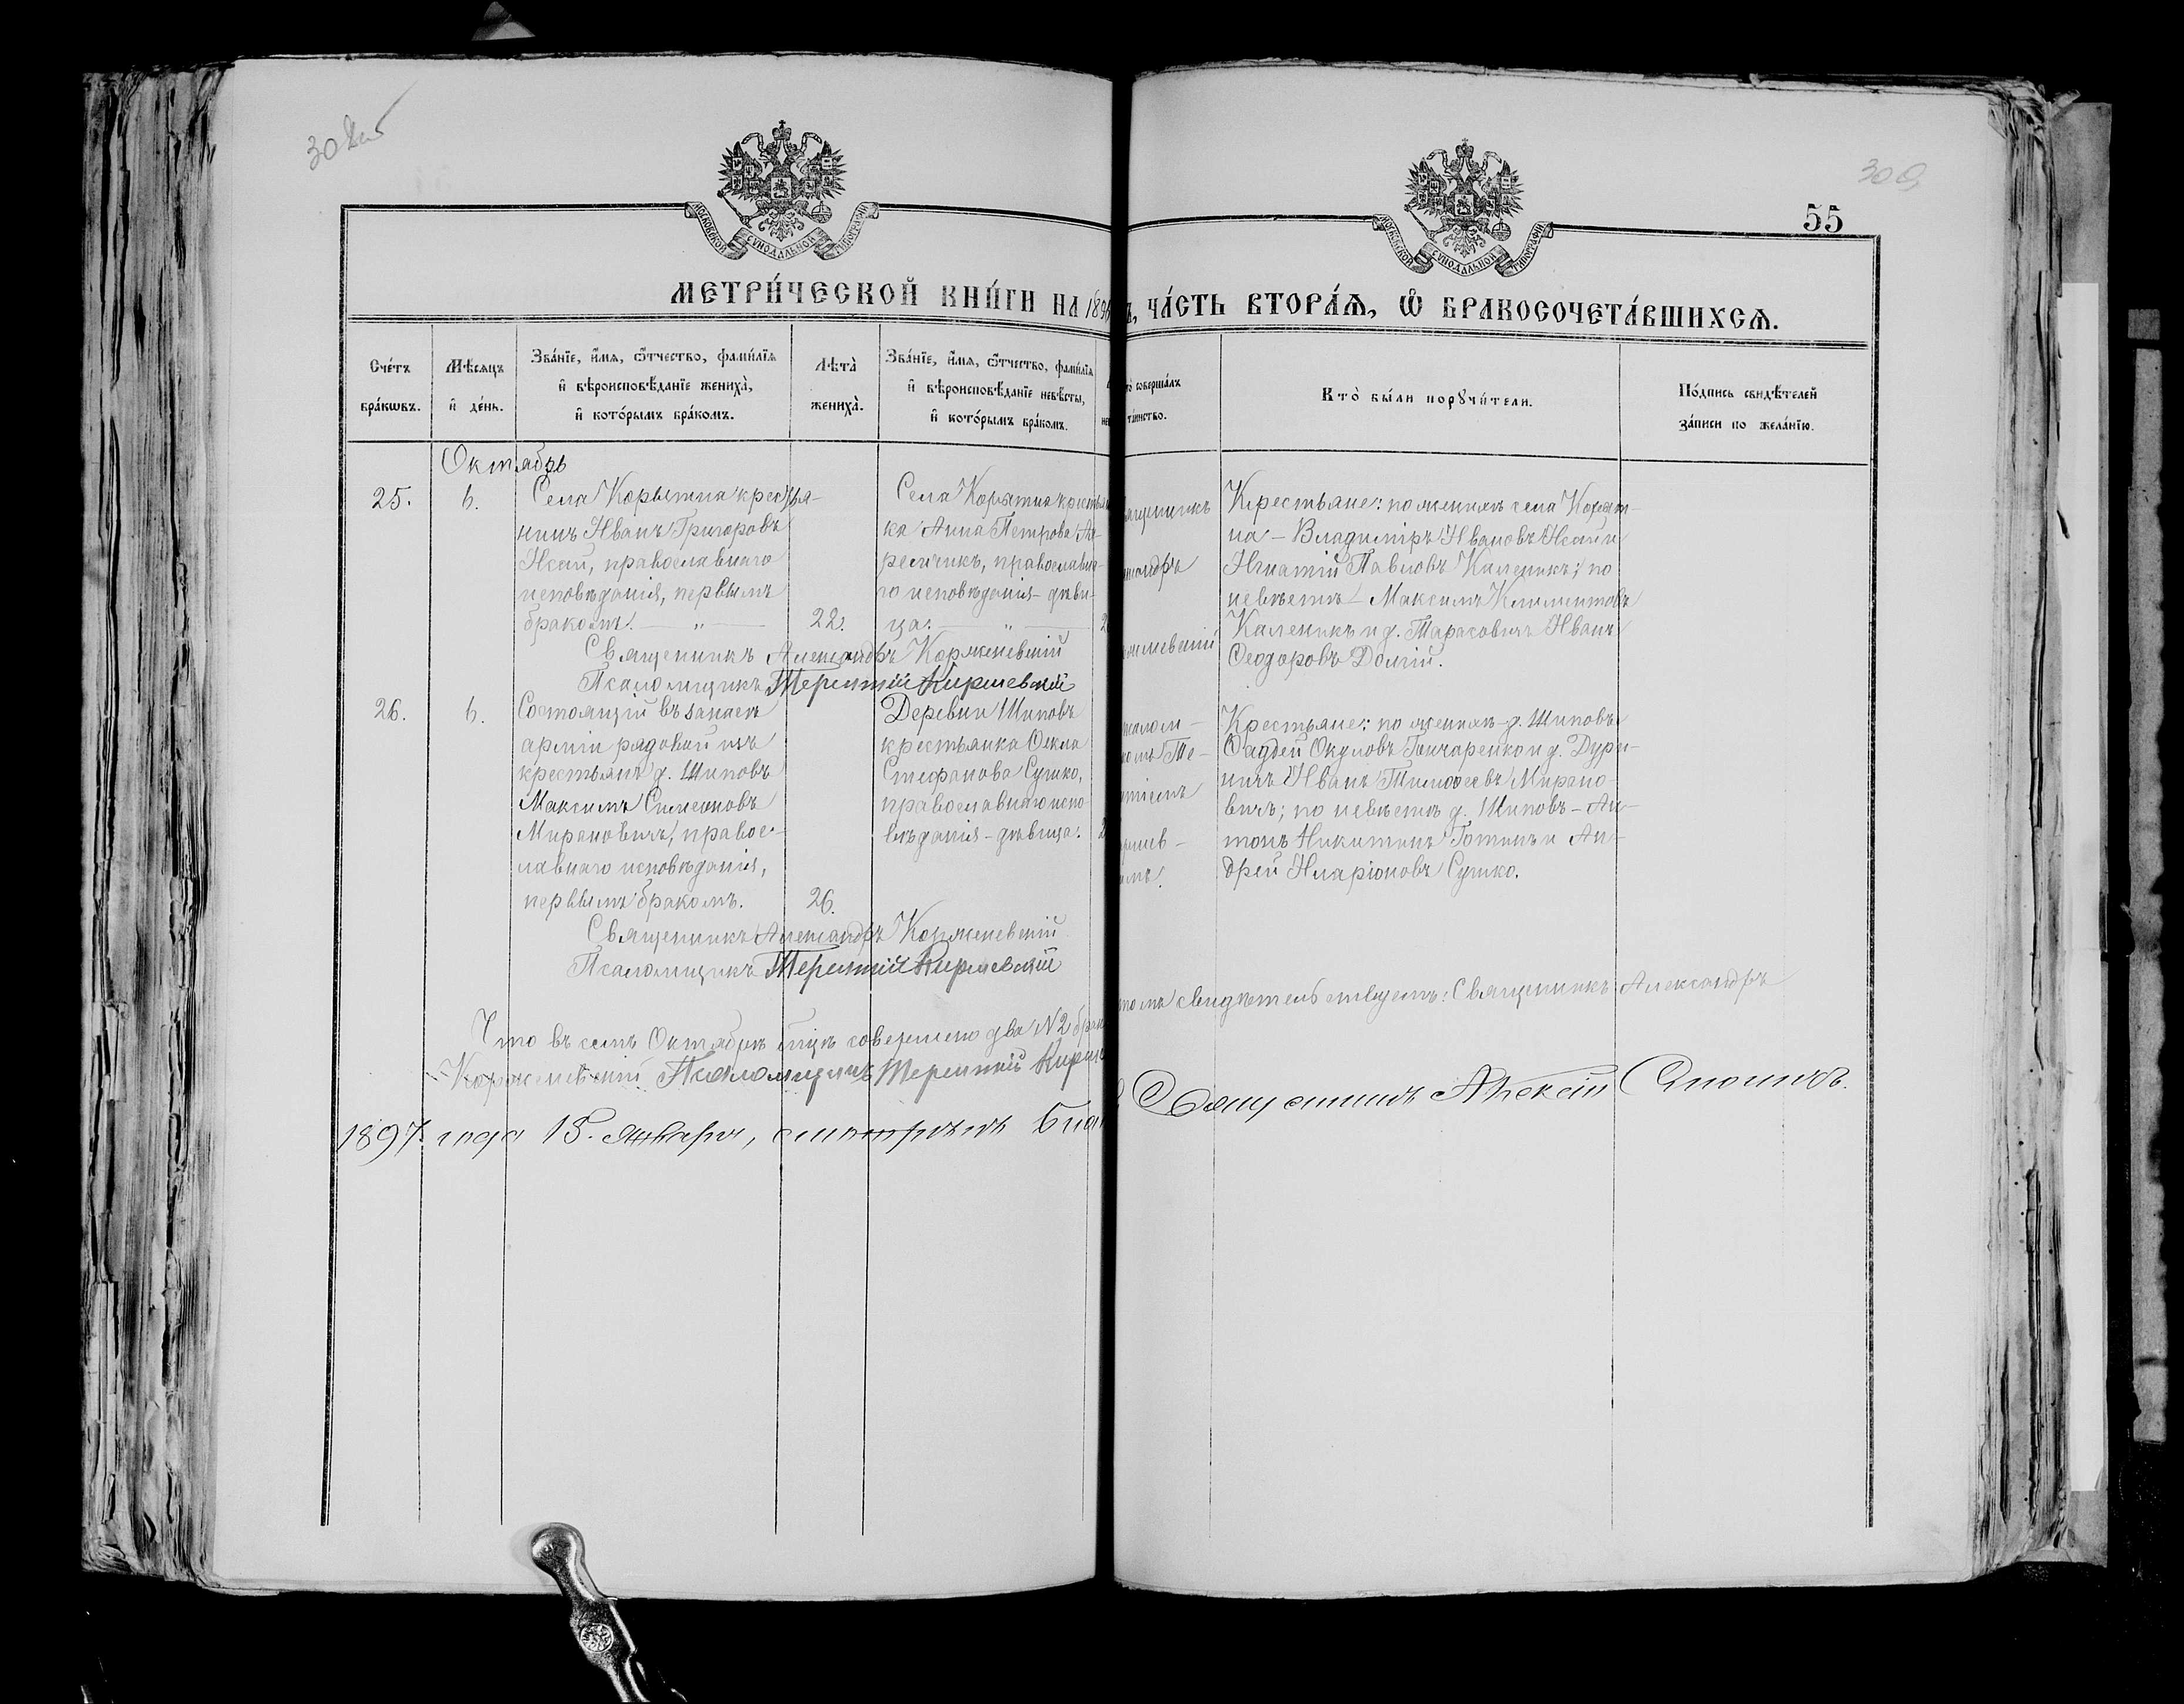 55
МОСКОВСКОЙ СѴНОДАЛЬНОЙ ТИПОГРАФІИ
МОСКОВСКОЙ СѴНОДАЛЬНОЙ ТИПОГРАФІИ
МЕТРИ́ЧЕСКОЙ КНИ́ГИ НА 189
Ъ, ЧА́СТЬ ВТОРА́Ѧ, Ѽ БРАКОСОЧЕТА́ВШИХСѦ.
Сче́тъ
бра́кѡвъ.
Мѣ́сѧцъ
и҆ де́нь.
Зва́нїе, и҆́мѧ, ѻ҆́тчество, фами́лїѧ
и҆ вѣроисповѣ́данїе жениха̀,
и҆ кото́рымъ бра́комъ.
Лѣ́та̀
жениха̀.
Зва́нїе, и҆́мѧ, ѻ҆́тчество, фами́лїѧ
и҆ вѣроисповѣ́данїе невѣ́сты,
и҆ кото́рымъ бра́комъ.
то̀ соверша́лъ
та́инство.
Кто̀ бы́ли порꙋчи́тели.
По́дпись свидѣ́телей
за́писи по жела́нїю.
Октябрь
25.
6.
Села Корытна крестья-
нинъ Иванъ Григоровъ
Исай, православнаго
исповѣданія, первымъ
бракомъ. — „ —
22.
Села Корытна крестьян
ка Анна Петрова
православна-
го исповѣданія - дѣви-
ца. — „ —
ященникъ
ександръ
рженевскій
Крестьяне: по женихѣ села Корыт-
на - Владиміръ Ивановъ Исай и
Игнатій Павловъ Каленикъ; по
невѣстѣ - Максимъ Климентовъ
Каленикъ и д. Тарасовичъ Иванъ
Ѳеодоровъ Долгій.
Священникъ Александръ Корженевскій
Псаломщикъ Терентій Киршевскій
26.
6.
Состоящій въ запасѣ
арміи рядовой изъ
крестьянъ д. Шиповъ
Максимъ Симеоновъ
Мироновичъ, правос-
лавнаго исповѣданія,
первымъ бракомъ.
26.
Деревни Шиповъ
крестьянка Ѳекла
Стефанова Сушко,
православнаго испо-
вѣданія - дѣвица.
салом-
комъ Те-
нтіемъ
ршев-
имъ.
Крестьяне: по женихѣ - д. Шиповъ
Ѳаддей Окуловъ Гончаренко и д. Дури-
чичъ Иванъ Тимоѳеевъ Мироно-
вичъ; по невѣстѣ д. Шиповъ - Ан-
тонъ Никитинъ Готинъ и Ан-
дрей Иларіоновъ Сушко.
Священникъ Александръ Корженевскій
Псаломщикъ Терентій Киршевскій
Что въ семъ Октябрѣ м-цѣ совершено два № 2 брак
томъ свидѣтельствуемъ: Священникъ Александръ
Корженевскій Псаломщикъ Терентій Кирше
1897 года 15. Января, смотрѣлъ Благ
Священникъ Алексій